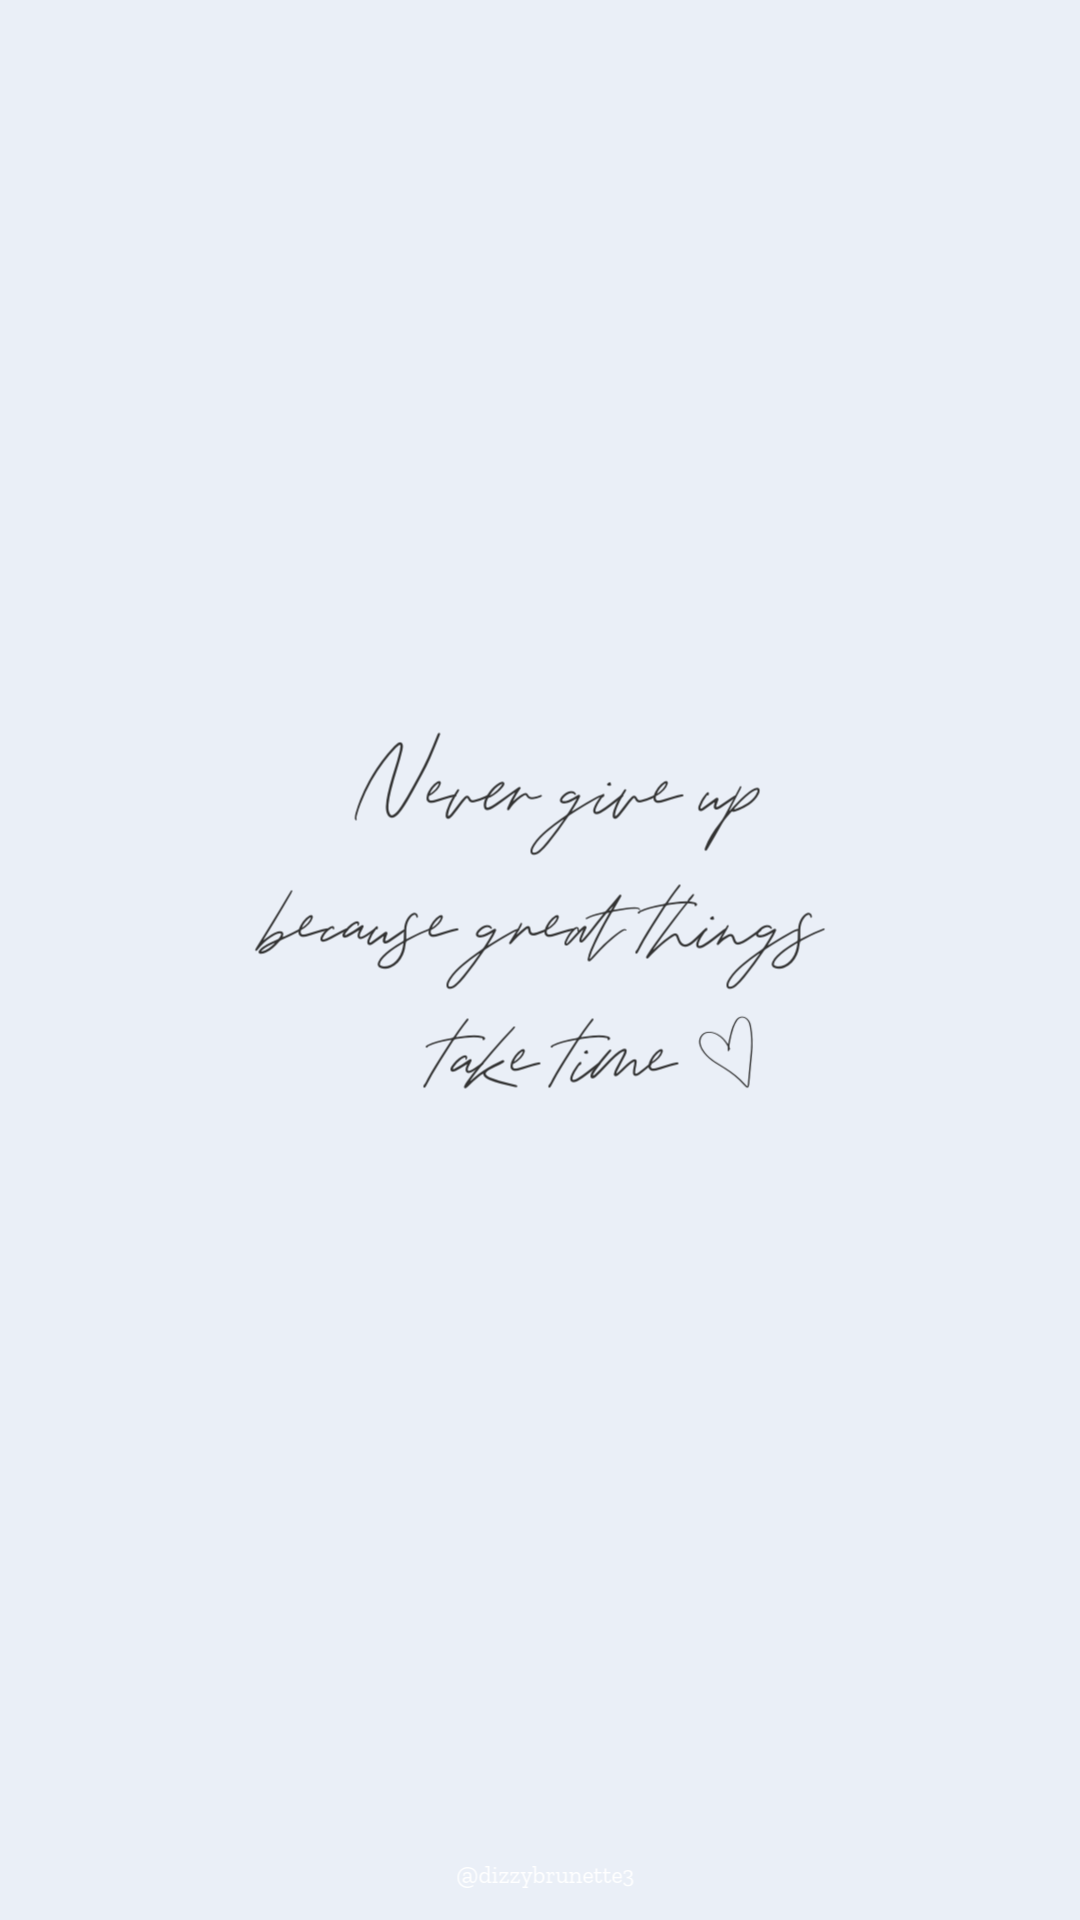 Never give up
because great things
take time
@dizzybrunette3